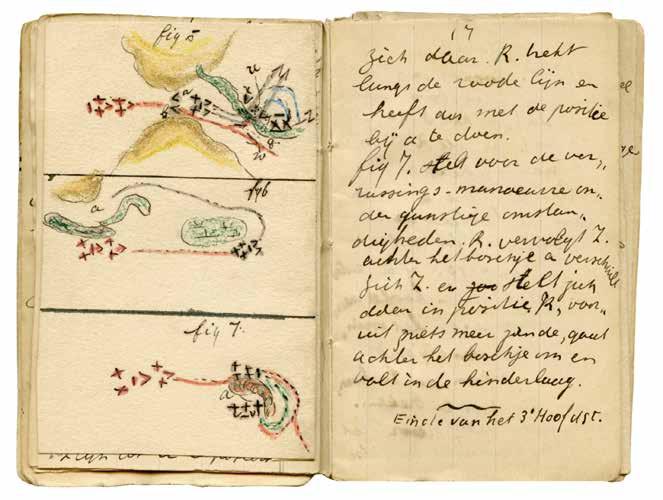 fig 5
a
fig 6
a
fig 7.
a
17
zich daar. R. trekt
langs de roode lijn en
heeft dus met de positie
bij a te doen.
fig 7. stelt voor de ver-
rassings-manoeuvre on-
der gunstige omstan-
digheden. R. vervolgt Z.
achter het boschje a verschuilt
zich Z. en stelt zich
dáár in positie, R, voor-
uit niets meer ziende, gaat
achter het boschje om en
valt in de hinderlaag.
Einde van het 3e Hoofdst.